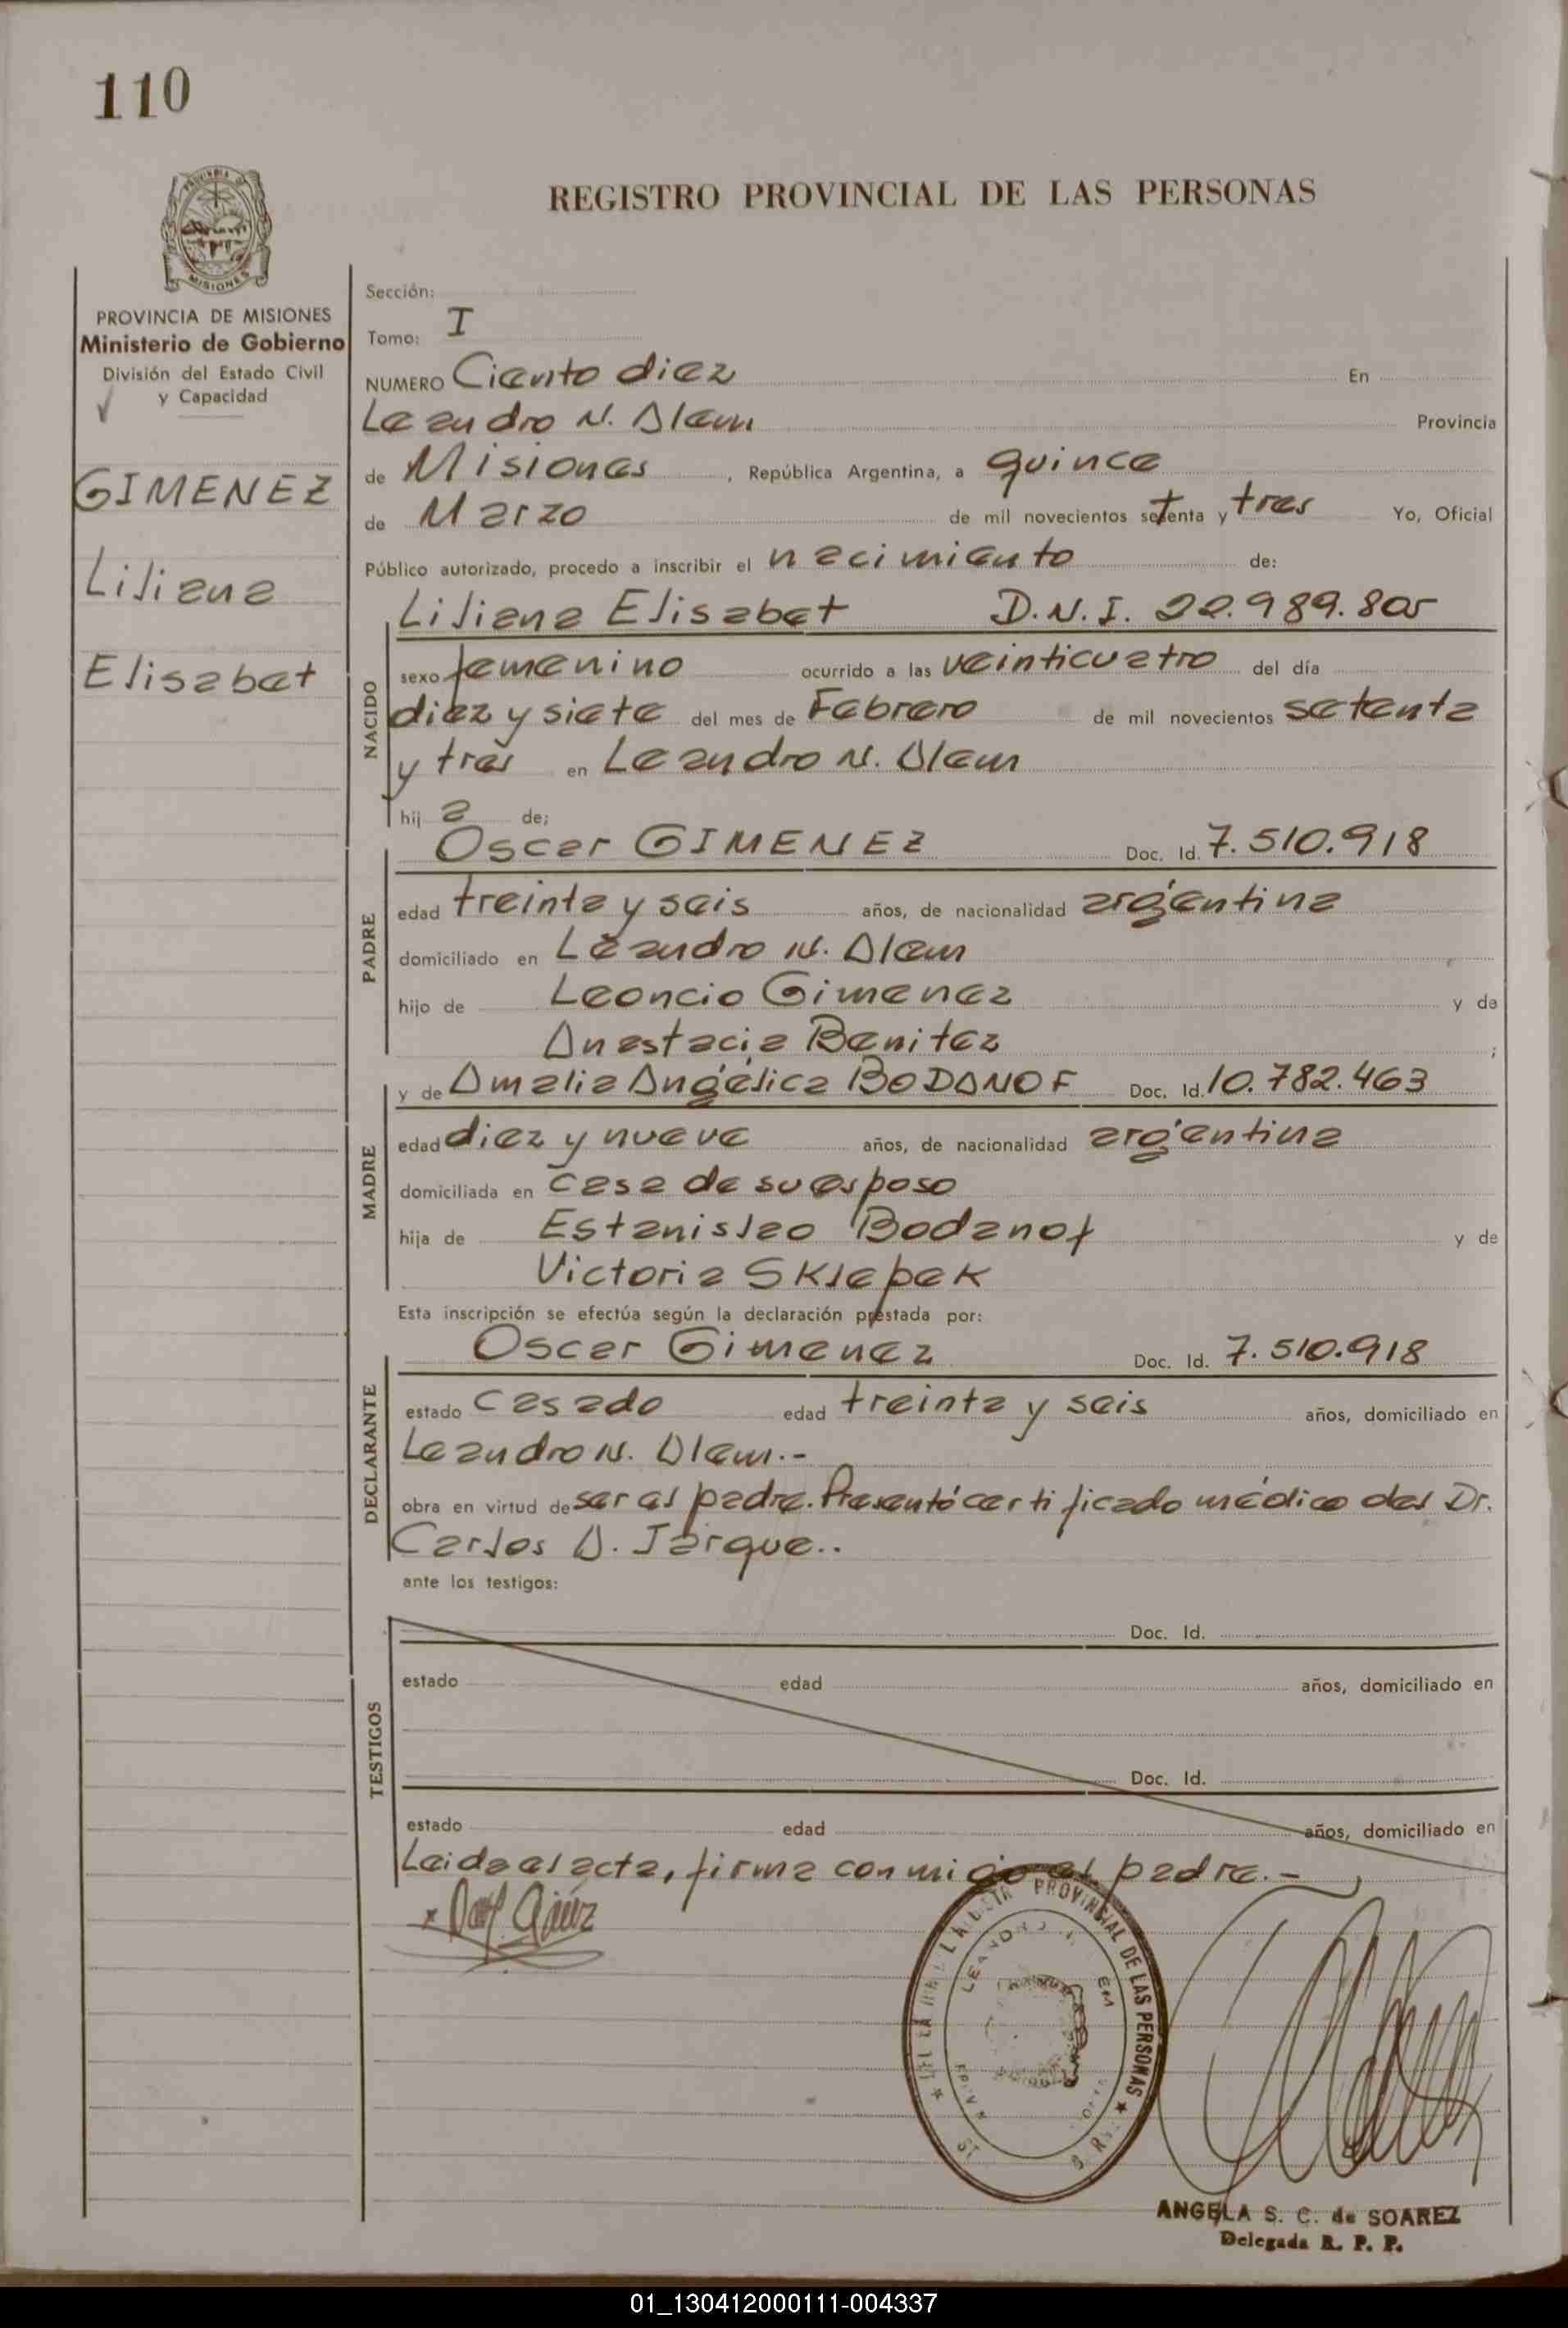 110
REGISTRO PROVINCIAL DE LAS PERSONAS
MISIONES
PROVINCIA DE MISIONES
Ministerio de Gobierno
División del Estado Civil
y Capacidad
GIMENEZ
Liliana
Elisabet
Sección:
Tomo: I
NUMERO Ciento diez En
Leandro N. Alem Provincia
de Misiones, República Argentina, a quince
de Marzo de mil novecientos setenta y tres Yo, Oficial
Público autorizado, procedo a inscribir el nacimiento de:
Liliana Elisabet D.N.I. 22.989.805
NACIDO
sexo femenino ocurrido a las veinticuatro del día
diez y siete del mes de Febrero de mil novecientos setenta
y tres en Leandro N. Alem
hij a de;
Oscar GIMENEZ Doc. Id. 7.510.918
PADRE
edad treinta y seis años, de nacionalidad argentina
domiciliado en Leandro N. Alem
hijo de Leoncio Gimenez y de
Anastacia Benitez ;
y de Amalia Angélica BODANOF Doc. Id. 10.782.463
MADRE
edad diez y nueve años, de nacionalidad argentina
domiciliada en casa de su esposo
hija de Estanislao Bodanof y de
Victoria Sklepek
Esta inscripción se efectúa según la declaración prestada por:
Oscar Gimenez Doc. Id. 7.510.918
DECLARANTE
estado casado edad treinta y seis años, domiciliado en
Leandro N. Alem.-
obra en virtud de ser el padre. Presentó certificado médico del Dr.
Carlos A. Jarque..
ante los testigos:
TESTIGOS
Doc. Id.
estado edad años, domiciliado en
Doc. Id.
estado edad años, domiciliado en
Leida el acta, firma conmigo el padre.-
PROVINCIAL DE LAS PERSONAS
ANGELA S. C. de SOAREZ
Delegada R. P. P.
01_130412000111-004337